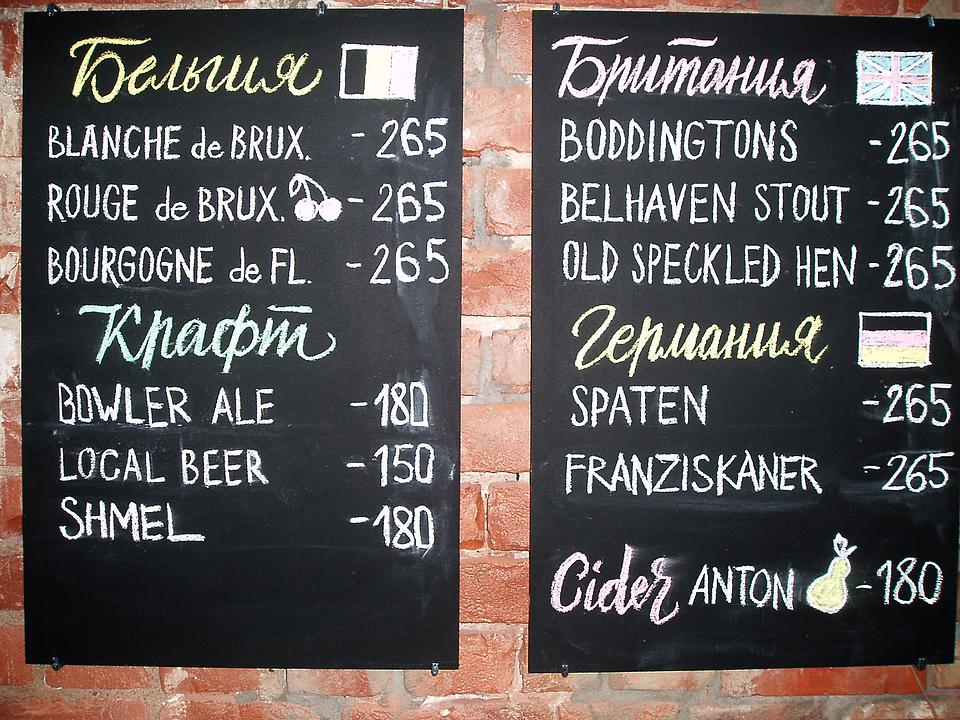 Бельгия
BLANCHE de BRUX. - 265
ROUGE de BRUX. - 265
BOURGOGNE de FL. - 265
Крафт
BOWLER ALE - 180
LOCAL BEER - 150
SHMEL - 180
Британия
BODDINGTONS - 265
BELHAVEN STOUT - 265
OLD SPECKLED HEN - 265
Германия
SPATEN - 265
FRANZISKANER - 265
Cider ANTON - 180